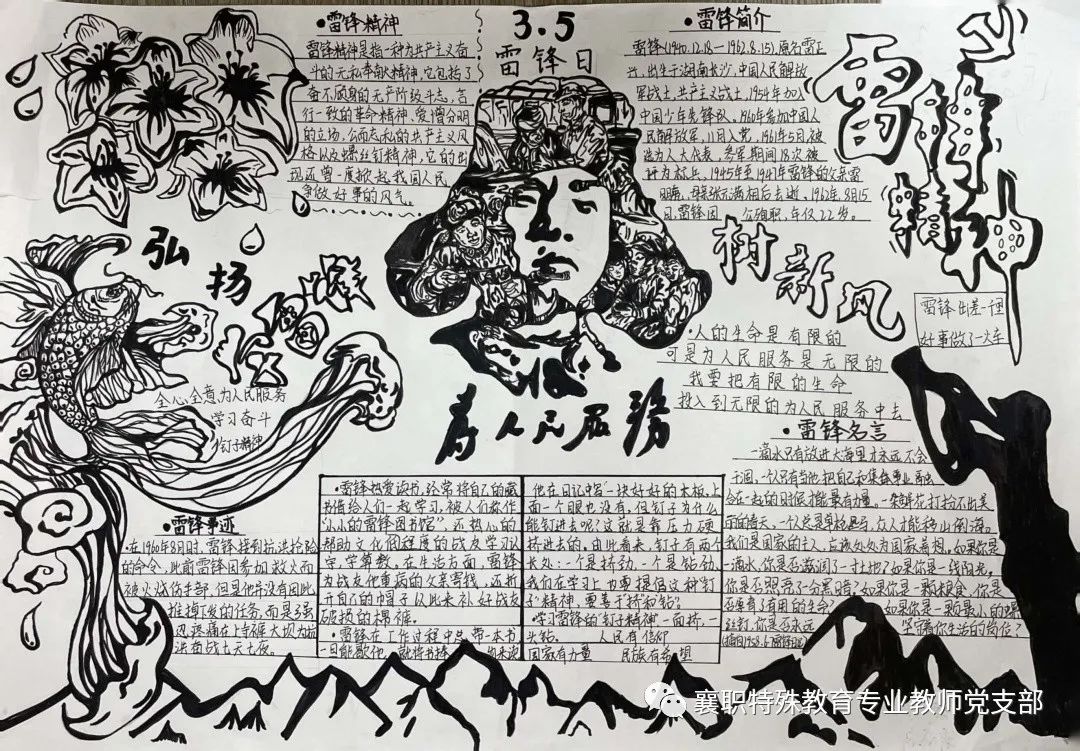 •雷锋精神
雷锋精神是指一种为共产主义奋
斗的无私奉献精神,它包括了
奋不顾身的无产阶级斗志,言
行一致的革命精神,爱憎分明
的立场,公而忘私的共产主义风
格以及螺丝钉精神,它的出
现还曾一度掀起我国人民
争做好事的风气。
3.5
雷锋日
•雷锋简介
雷锋(1940.12.18—1962.8.15),原名雷正
兴,出生于湖南长沙,中国人民解放
军战士,共产主义战士,1954年加入
中国少年先锋队,1960年参加中国人
民解放军,11月入党,1961年5月被
选为人大代表,参军期间18次被
评为标兵,1945年至1947年雷锋的父亲雷
明亮,母亲张元满相后去逝,1962年8月15
日,雷锋因 公殉职,年仅22岁。
雷锋精神
树新风
弘扬
全心全意为人民服务
学习奋斗
钉子精神
为人民服务
雷锋出差一里
好事做了一火车
•人的生命是有限的
可是为人民服务是无限的
我要把有限的生命
投入到无限的为人民服务中去
•雷锋名言
一滴水只有放进大海里才永远不会
干涸,一个人只有当他把自己和集体事业融
合在一起的时候才能最有力量。一朵鲜花打扮不出美
丽的春天,一个人总是单枪匹马,众人才能移山倒海。
我们是国家的主人,应该处处为国家着想。如果你是
一滴水,你是否滋润了一寸土地?如果你是一线阳光,
你是否照亮了一分黑暗?如果你是一颗粮食,你是
否哺育了有用的生命?如果你是一颗最小的螺
丝钉,你是否永远
坚守着你生活的岗位?
•雷锋事迹
•在1960年8月时,雷锋接到抗洪抢险
的命令,此前雷锋因参加救火而
被火烧伤手部,但是他并没有因此
推掉下发的任务,而是强
忍疼痛在上寺水库大坝为抗
洪奋战七天七夜。
•雷锋热爱读书,经常将自己的藏
书借给人们一起学习,被人们称作
“小小的雷锋图书馆”还热心的
帮助文化低程度的战友学习认
字,学算数。在生活方面,雷锋
为战友他重病的父亲寄钱,还拆
开自己的帽子从此来补好战友
破损的棉裤。
•雷锋在工作过程中总带一本书
他在日记中写“一块好好的木板,上
面一个眼也没有,但钉子为什么
能钉进去呢?这就是靠压力硬
挤进去的。由此看来,钉子有两个
长处:一个是挤劲,一个是钻劲,
我们在学习上也要提倡这种钉
子”精神,要善于挤和钻。
•学习雷锋的钉子精神一面挤,一
头钻。 人民有信仰
国家有力量 民族有希望
襄职特殊教育专业教师党支部